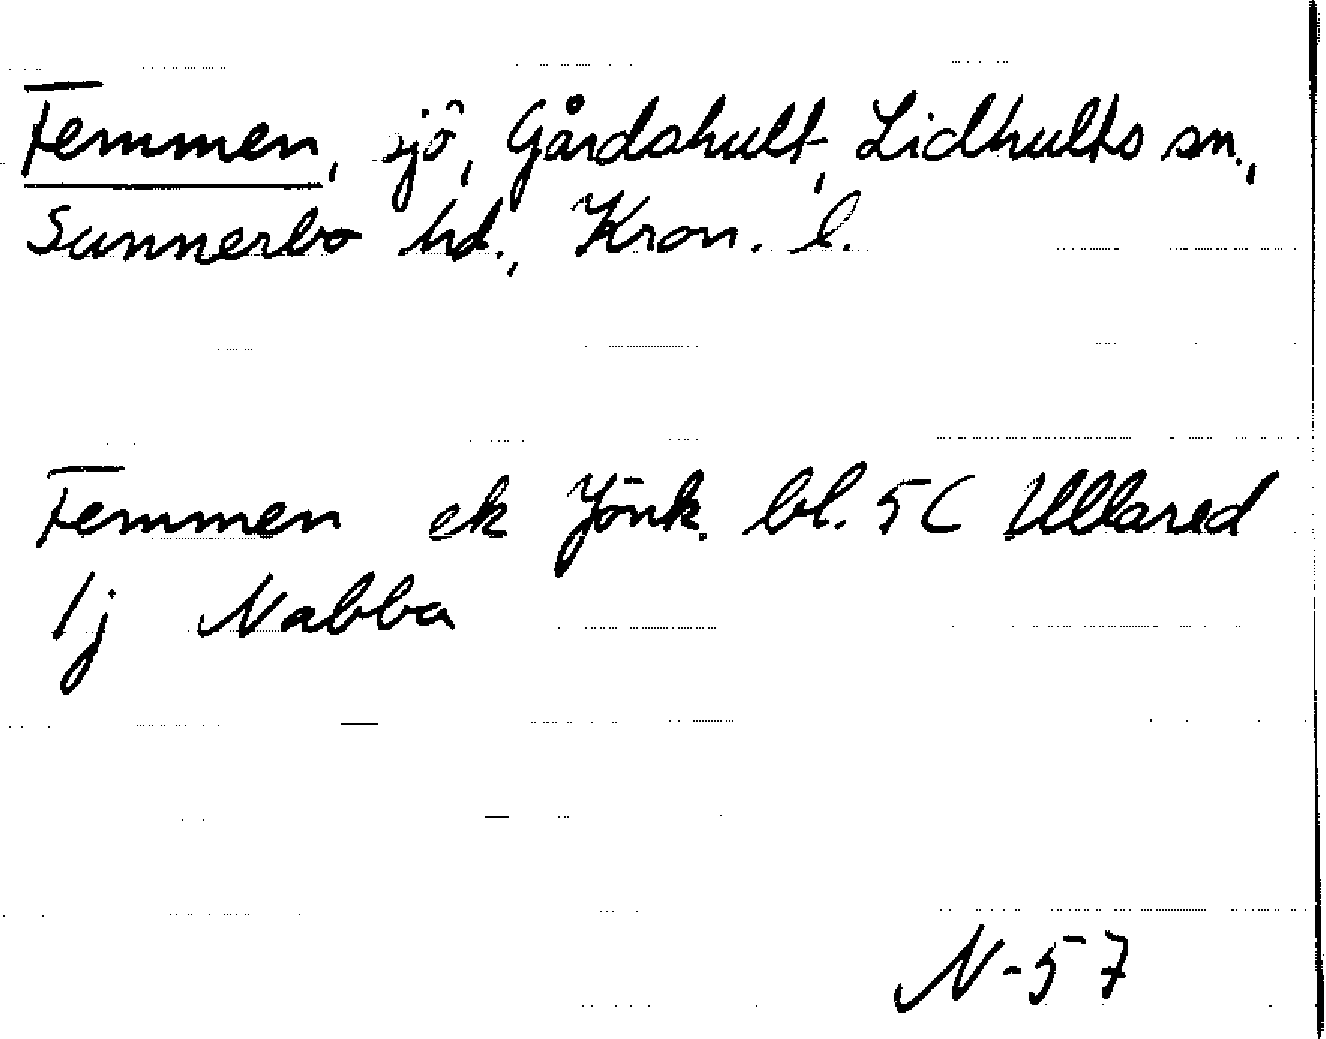 Femmen, sjö, Gårdshult, Lidhults sn.,
Sunnerbo hd., Kron. l.
Femmen ek Jönk. bl. 5C Ullared
1j Nabba
N-57